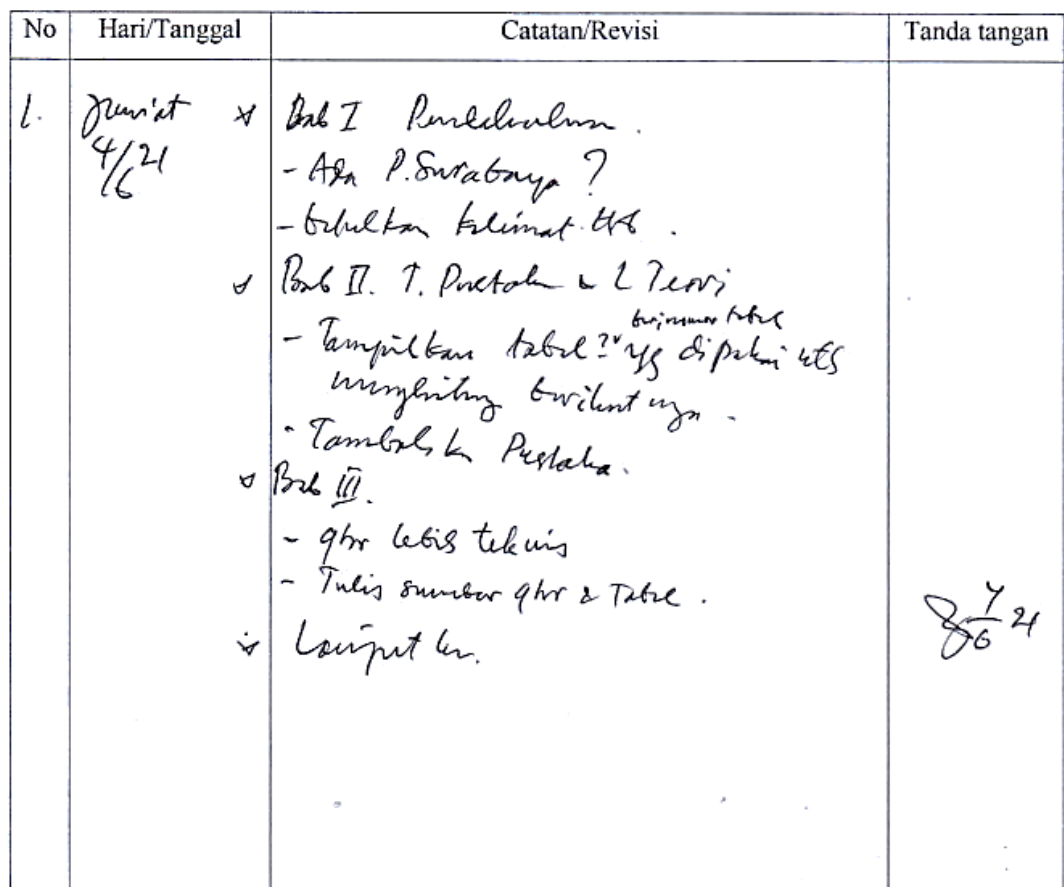 No Hari/Tanggal Catatan/Revisi Tanda tangan
1. Jum'at Bab I Pendahuluan.
4/6 21
- Ada P. Surabaya ?
- betulkan kalimat ttb.
Bab II. T. Pustaka & L Teori
beri nomor tabel
- Tampilkan tabel2 yg dipakai utk
menghitung berikutnya.
- Tambahkan Pustaka.
Bab III.
- gbr lebih teknis
- Tulis sumber gbr & Tabel.
4/6 21
Lanjutkan.